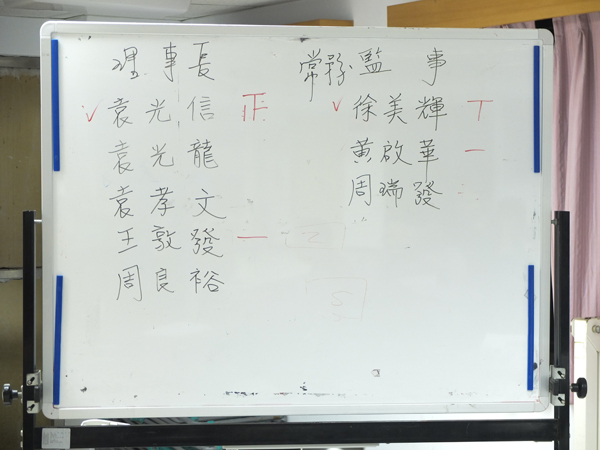 理事長
✓袁光信 正
袁光龍
袁孝文
王敦發 一
周良裕
常務監事
✓徐美輝 丅
黃啟華 一
周瑞發